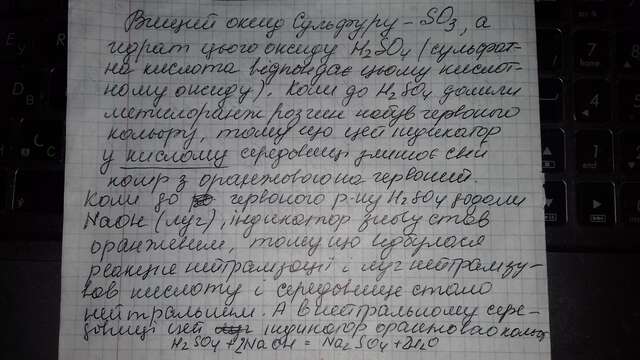 Вищий оксид Сульфуру – SO₃, а
гідрат цього оксиду H₂SO₄ (сульфат-
на кислота відповідає цьому кислот-
ному оксиду). Коли до H₂SO₄ долили
метилоранж розчин набув червоного
кольору, тому що цей індикатор
у кислому середовищі змінює свій
колір з оранжового на червоний.
Коли до червоного р-ну H₂SO₄ додали
NaOH (луг), індикатор знову став
оранжевим, тому що відбулася
реакція нейтралізації і луг нейтралізу-
вав кислоту і середовище стало
нейтральним. А в нейтральному сере-
довищі цей індикатор оранжового кольору
H₂SO₄ + 2NaOH = Na₂SO₄ + 2H₂O